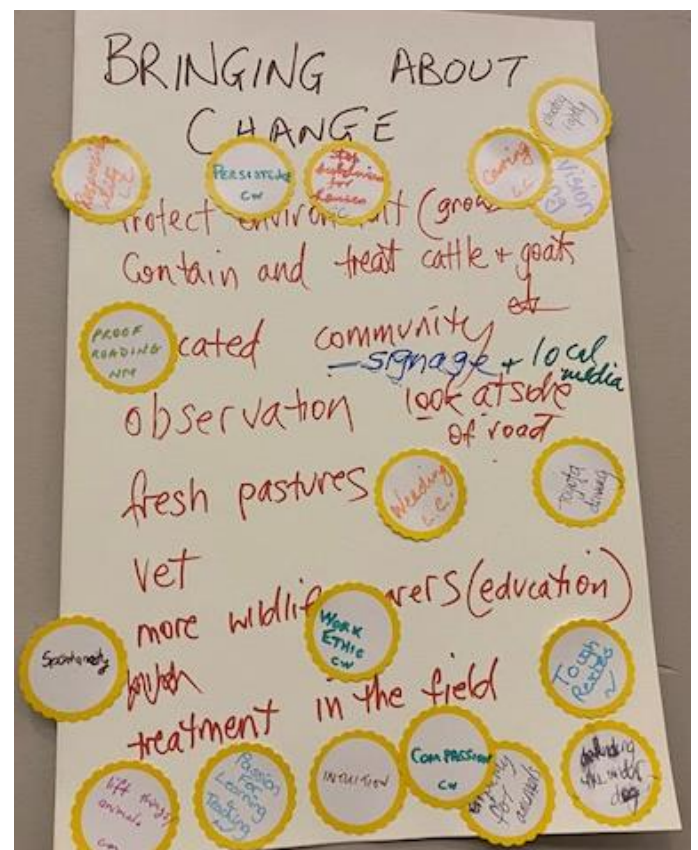 BRINGING ABOUT
CHANGE
PERSISTENCE
CW
Caring
L.C.
Vision
Protect environment (grow
Contain and treat cattle + goats
etc
PROOF
READING
NM
cated community
- signage + local
media
observation look at side
of road
fresh pastures
Weeding
L.C.
Toyota
driving
vet
more wildlif arers (education)
WORK
ETHIC
CW
Spontaneity
Tough
treatment in the field
lift things,
animals
Passion
For
Learning
&
Teaching
INTUITION
COMPASSION
CW
for
animals